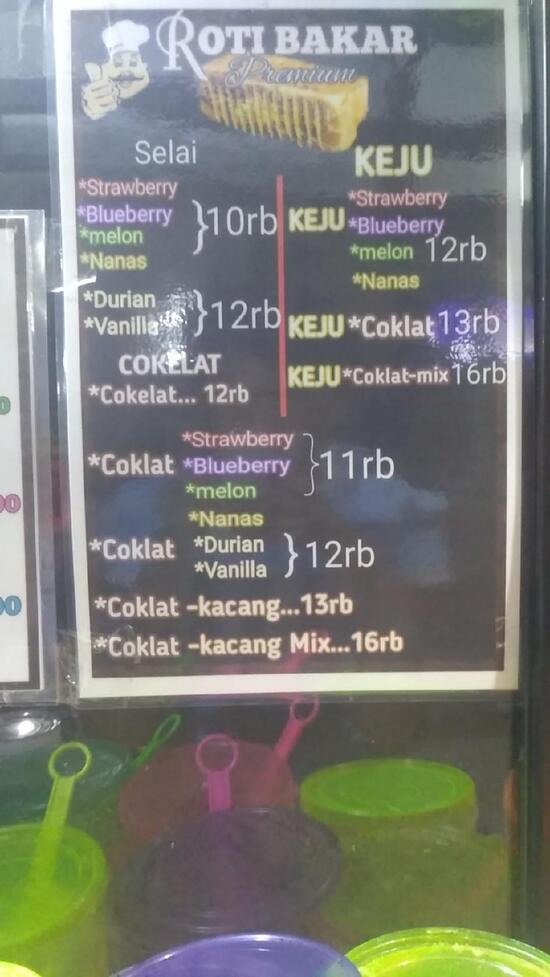 ROTI BAKAR
Premium
Selai
*Strawberry
*Blueberry
*melon
*Nanas
}10rb
*Durian
*Vanilla
}12rb
COKELAT
*Cokelat... 12rb
KEJU
KEJU
*Strawberry
*Blueberry
*melon 12rb
*Nanas
KEJU *Coklat 13rb
KEJU *Coklat-mix 16rb
*Coklat
*Strawberry
*Blueberry
*melon
*Nanas
}11rb
*Coklat
*Durian
*Vanilla
}12rb
*Coklat -kacang...13rb
*Coklat -kacang Mix...16rb